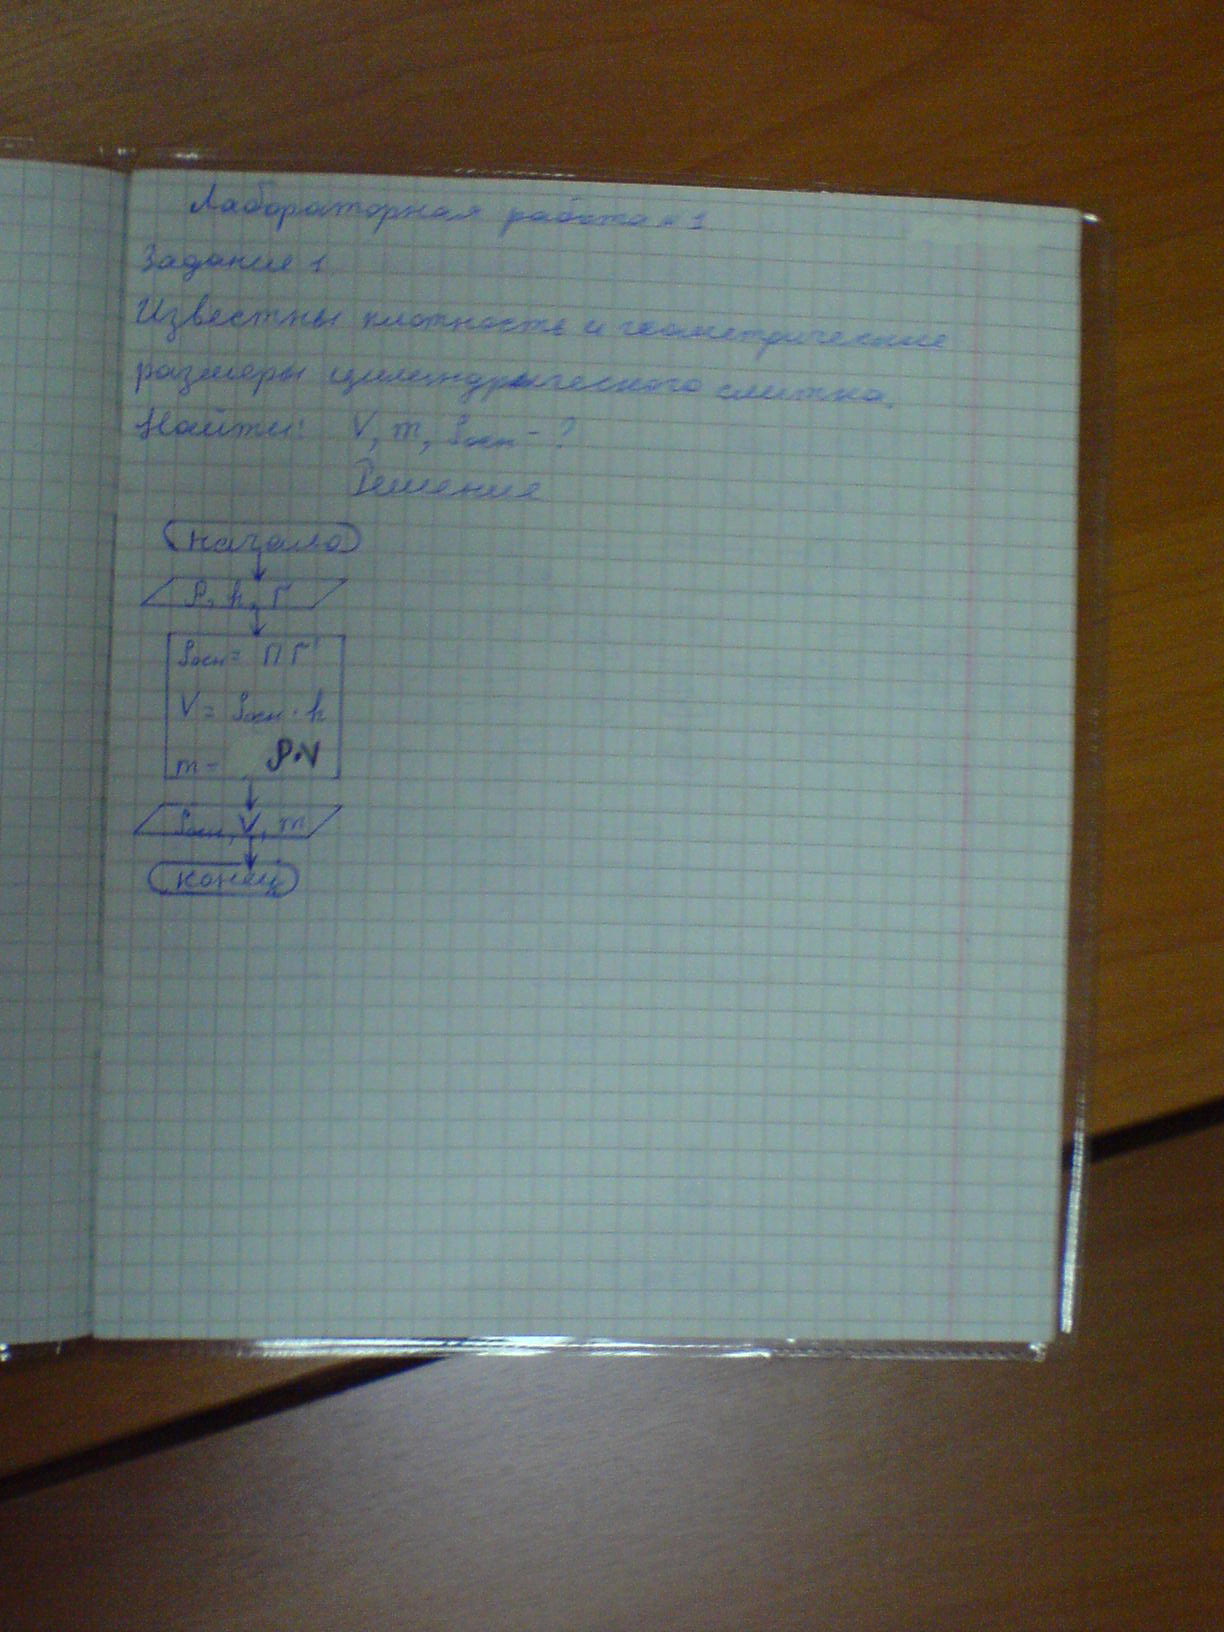 Лабораторная работа №1
Задание 1
Известны плотность и геометрические
размеры цилиндрического слитка.
Найти: V, m, Sосн - ?
Решение
начало
ρ, h, r
Sосн = πr²
V = Sосн · h
m = ρ·V
Sосн, V, m
конец